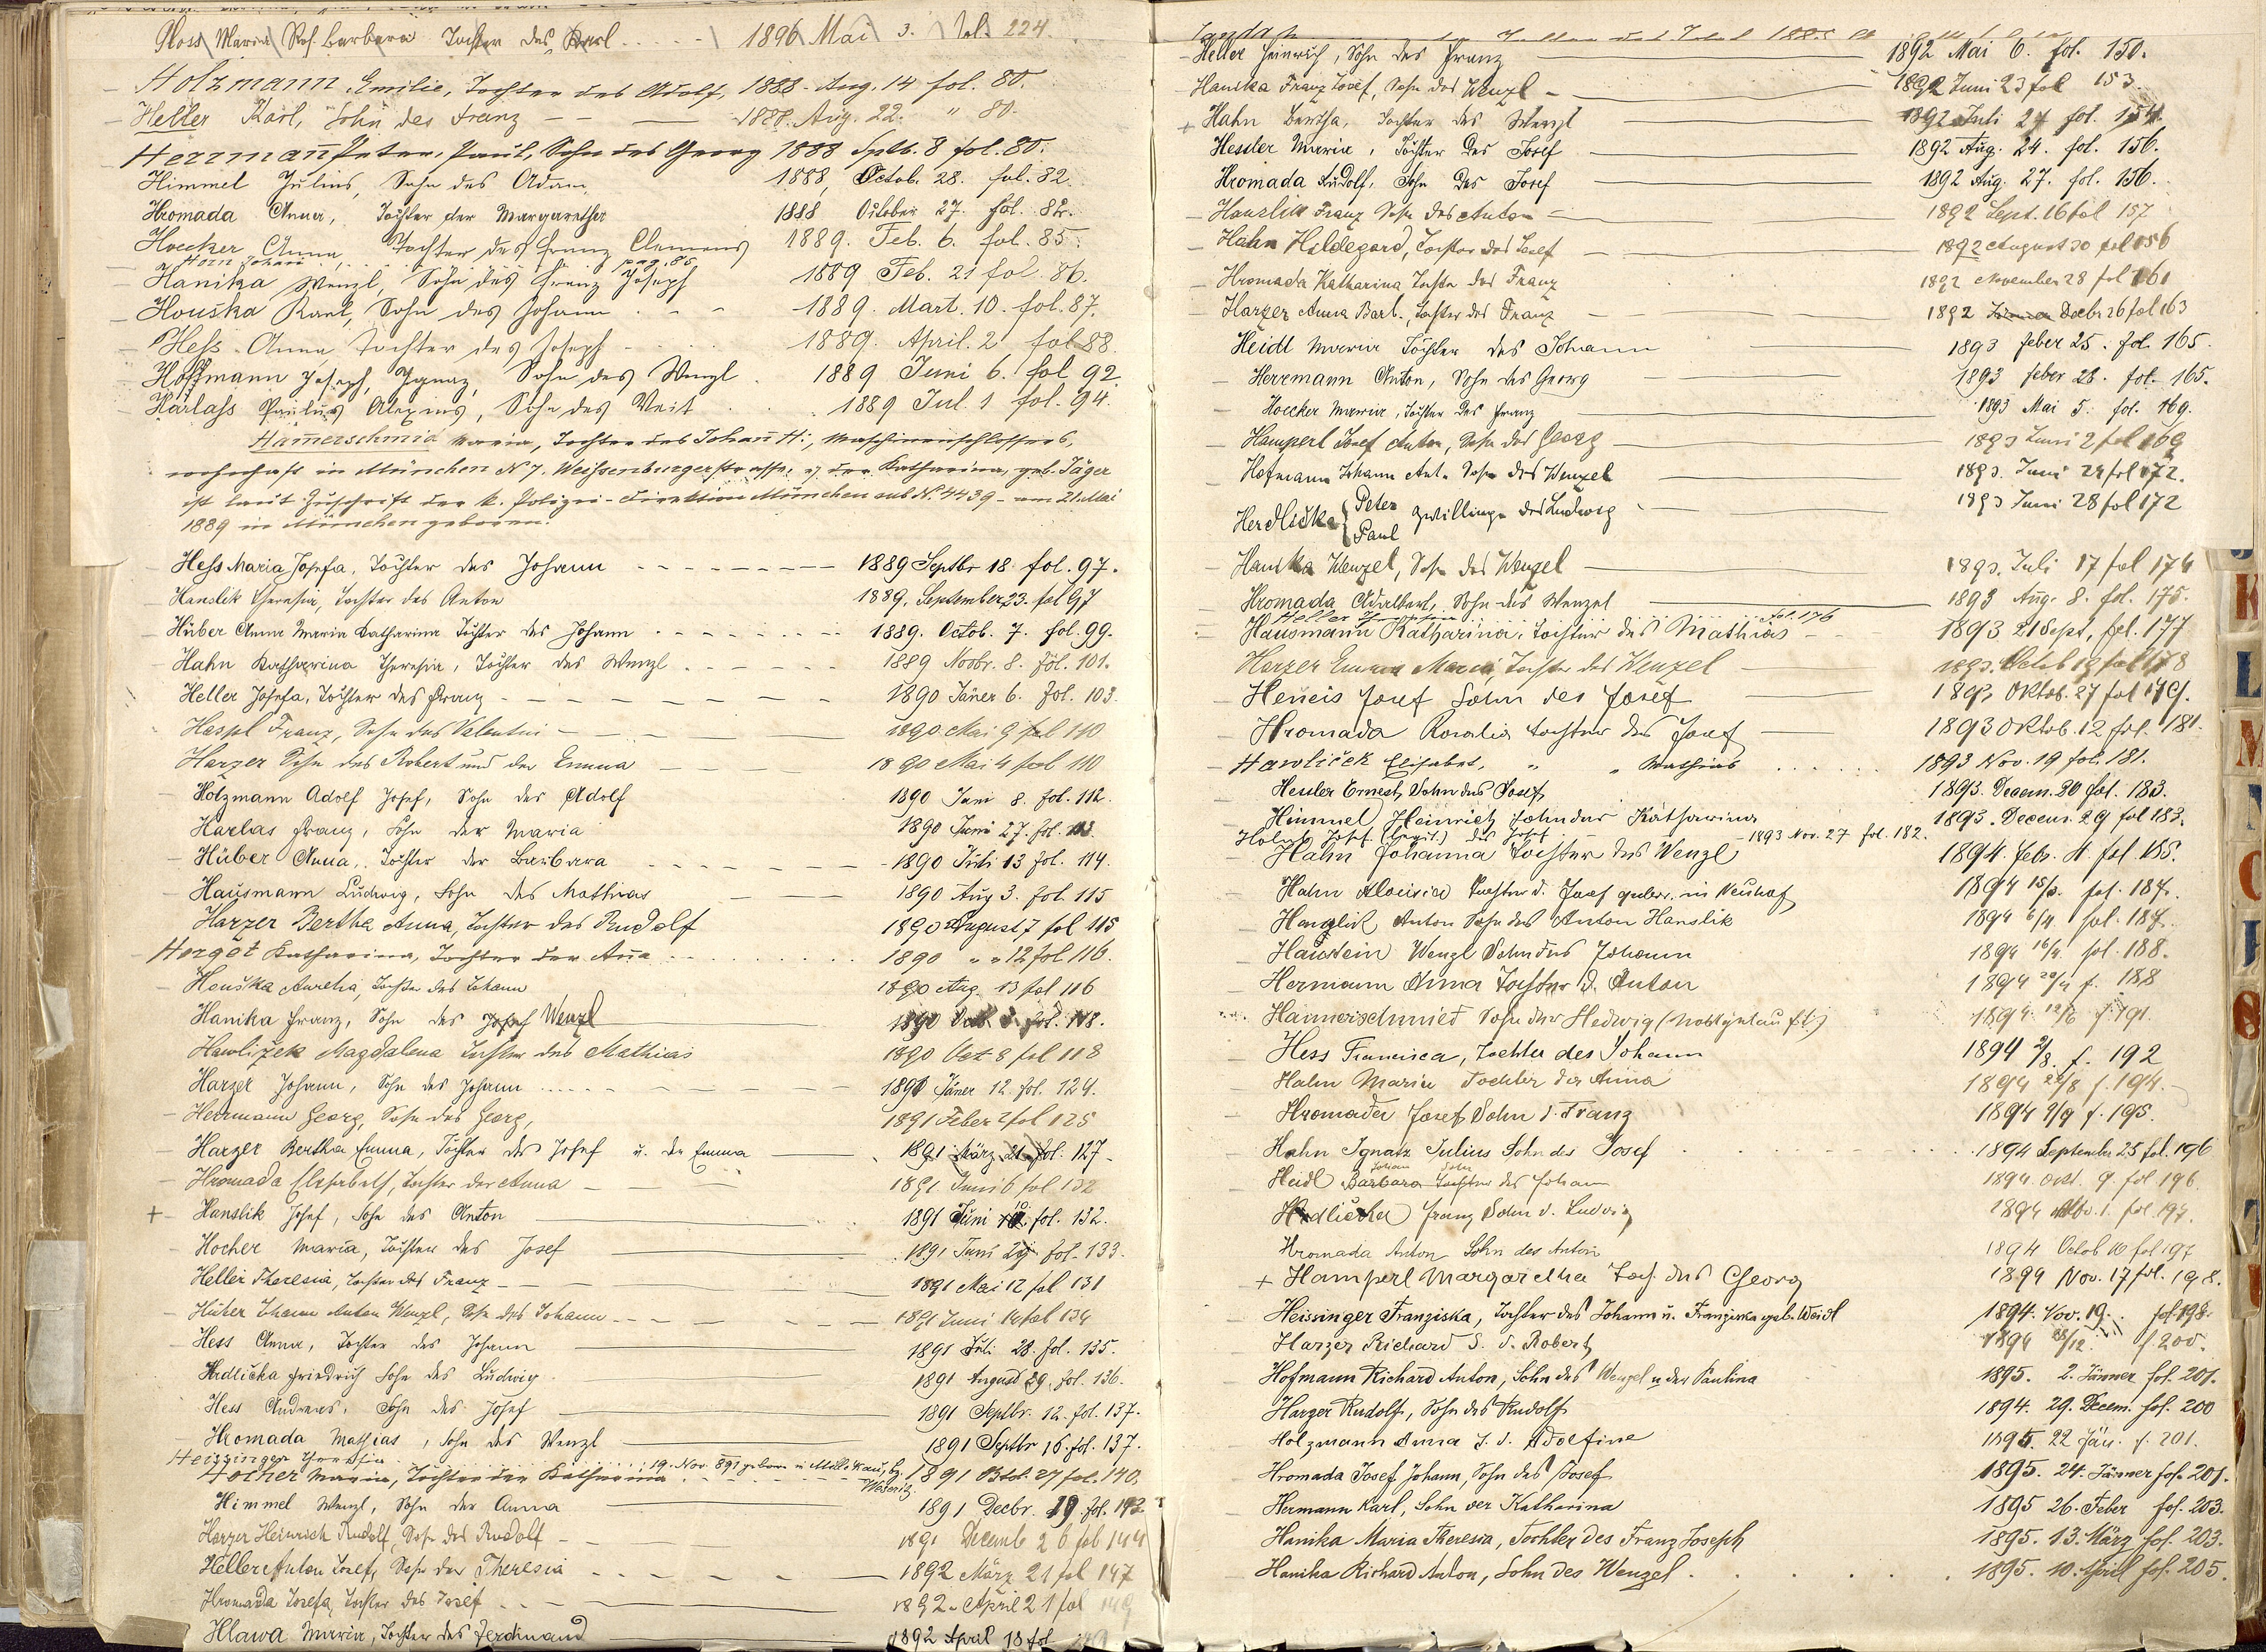 Gloss Maria Ros. Barbara Tochter des Karl 1896 Mai 3. fol. 224.
Holzmann Emilie, Tochter des Adolf, 1888 - Aug. 14 fol. 80.
Heller Karl, Sohn des Franz 1888. Aug. 22. " 80.
Herrmann Peter, Paul, Sohn des Georg 1888 Septb. 8 fol. 80.
Himmel Julius, Sohn des Adam 1888, Octob. 28. fol. 82.
Hromada Anna, Tochter der Margaretha 1888 October 27. fol. 82.
Hoecker Anna Tochter des Franz Clemens 1889. Feb. 6. fol. 85.
Horn Johann pag. 85
Hanika Wenzl, Sohn des Franz Joseph 1889 Feb. 21 fol. 86.
Houška Karl, Sohn des Johann 1889. Mart. 10. fol. 87.
Hess Anna Tochter des Joseph 1889. April. 2 fol 88.
Hoffmann Joseph, Ignaz, Sohn des Wenzl 1889 Juni 6. fol 92.
Harlass Paulus Alexius, Sohn des Veit 1889 Jul. 1 fol. 94.
Hamerschmid Maria, Tochter des Johañ H., Maschinenschlossers,
wohnhaft in München N 7, Weissenburgerstrasse, u. der Katharina, geb. Jäger
ist laut Zuschrift der k. Polizei-Direktion München sub N. 4439 - am 21. Mai
1889 in München geboren.
Hess Maria Josefa, Tochter des Johann 1889 Septbr 18. fol. 97.
Hanslik Theresia, Tochter des Anton 1889. September 23. fol 97
Hüber Anna Maria Katharina Tochter des Johann 1889. Octob. 7. fol. 99.
Hahn Katharina Theresia, Tochter des Wenzl 1889 Novbr. 8. fol. 101.
Heller Josefa, Tochter des Franz 1890 Jäner 6. fol. 103.
Haspl Franz, Sohn des Valentin 1890 Mai 9 fol 110
Harzer Sohn des Robert und der Emma 1890 Mai 4 fol 110
Holzmann Adolf Josef, Sohn des Adolf 1890 Juni 8. fol. 112.
Harlas Franz, Sohn der Maria 1890 Juni 27. fol. 113.
Hüber Anna, Tochter der Barbara 1890 Juli 13 fol. 114.
Hausmann Ludwig, Sohn des Mathias 1890 Aug 3. fol. 115
Harzer Bertha Anna, Tochter des Rudolf 1890 August 7 fol 115
Herget Katharina, Tochter der Aña 1890 " " 12 fol 116.
Houška Aurelia, Tochter des Johann 1890 Aug. 13 fol 116
Hanika Franz, Sohn des Josef Wenzl 1890 fol. 118.
Hawližek Magdalena Tochter des Mathias 1890 Oct 8 fol 118
Harzer Johann, Sohn des Johann 1891 Jäner 12. fol. 124.
Herrmann Georg, Sohn des Georg, 1891 Feber 2 fol 125
Harzer Bertha Emma, Tochter des Josef u. der Emma 1891 März 21 fol. 127.
Hromada Elisabeth, Tochter der Anna 1891 Juni 6 fol 132
+ Hanslik Josef, Sohn des Anton 1891 Juni 10. fol. 132.
Hocher Maria, Tochter des Josef 1891 Juni fol. 133.
Heller Theresia, Tochter des Franz 1891 Mai 12 fol 131
Huber Johann Anton Wenzl, Sohn des Johann 1891 Juni 14 fol 134
Hess Anna, Tochter des Johann 1891 Juli 28. fol. 135.
Hrdlicka Friedrich Sohn des Ludwig 1891 August 29. fol. 136.
Hess Andreas, Sohn des Josef 1891 Septbr. 12. fol. 137.
Hromada Mathias, Sohn des Wenzl 1891 Septbr 16. fol. 137.
Heizzinger Theresia 19. Nov. 891 geboren in
Hocher Maria, Tochter der Katharina 1891 Btol. 27 fol. 140.
Himmel Wenzl, Sohn der Anna 1891 Decbr. 19 fol. 143.
Harzer Heinrich Rudolf, Sohn des Rudolf 1891 Decemb 26 fol 144
Heller Anton Josef, Sohn der Theresia 1892 März 21 fol 147
Hromada Josefa, Tochter des Josef 1892. April 21 fol 149
Hlawa Maria, Tochter des Ferdinand 1892 April 18 fol
Heller Heinrich, Sohn des Franz 1892 Mai 6. fol. 150.
Hanika Franz Josef, Sohn des Wenzl 1892 Juni 23 fol 153
+ Hahn Bertha, Tochter des Wenzl 1892 Juli 27 fol. 154.
Hessler Maria, Tochter des Josef 1892 Aug. 24. fol. 156.
Hromada Rudolf, Sohn des Josef 1892 Aug. 27. fol. 156.
Hanzlik Franz Sohn des Anton 1892 Sept. 16 fol 157
Hahn Hildegard, Tochter des Josef 1892 August 30 fol 156
Hromada Katharina Tochter des Franz 1892 November 28 fol 161
Harzer Anna Barb., Tochter des Franz 1892 Decbr 26 fol 163
Heidl Maria Tochter des Johann 1893 Feber 25. fol. 165.
Herrmann Anton, Sohn des Georg 1893 Feber 28. fol. 165.
Hoecker Maria, Tochter des Franz 1893 Mai 5. fol. 169.
Hamperl Josef Anton, Sohn des Georg 1893 Juni 2 fol 169
Hofmann Johann Ant. Sohn des Wenzel 1893. Juni 24 fol 172.
Herdlička { Peter Paul Zwillinge des Ludwig 1893 Juni 28 fol 172
Hanika Wenzel, Sohn des Wenzel 1893. Juli 17 fol 174
Hromada Adalbert, Sohn des Wenzel 1893 Aug. 8. fol. 175.
Heller fol. 176
Hausmann Katharina, Tochter des Mathias 1893 21 Sept, fol. 177
Harzer Emma Maria, Tochter des Wenzel 1893. Octob 19 fol 178
Heneis Josef Sohn des Josef 1893 Oktob. 27 fol 179.
Hromada Rosalia Tochter des Josef 1893 Oktob. 12 fol. 181.
Hawliček Elisabet, " " Mathias 1893 Nov. 19 fol. 181.
Hessler Ernest, Sohn des Josef 1893. Decem. 20 fol. 183.
Himmel Heinrich Sohn der Katharina 1893. Decem. 29 fol 183.
Holzl Josef (legit.) des Josef 1893 Nov. 27 fol. 182.
Hahn Johanna Tochter des Wenzl 1894. Febr. 4. fol. 185.
Hahn Aloisia Tochter d. Josef in Neuhof 1894 15/3. fol. 187.
Hanzlik Anton Sohn des Anton Hanslik 1894 6/4 fol. 187.
Hauwein Wenzl Sohn des Johann 1894 16/4. fol. 188.
Hermann Anna Tochter d. Anton 1894 20/4 f. 188
Hammerschmied Sohn der Hedwig 1894. 12/6 f. 191.
Hess Francisca, Tochter des Johann 1894 2/8. f. 192
Hahn Marie Tochter der Anna 1894 22/8 f. 194.
Hromada Josef Sohn d. Franz 1894 9/9 f. 195.
Hahn Ignatz Julius Sohn des Josef 1894 September 25 fol. 196
Johann Sohn
Heidl Barbara Tochter des Johann 1894. Okt. 9. fol. 196.
Hrdlička Franz Sohn d. Ludwig 1894 Nov. 1. fol. 197.
Hromada Anton Sohn des Anton 1894 Octob 10 fol 197
+ Hamperl Margaretha Toch. des Georg 1894 Nov. 17 fol. 198.
Heissinger Franziska, Tochter des Johann u. Franziska geb. Weidl 1894. Nov. 19. fol. 198.
Harzer Richard S. d. Robert 1894 28/12. f. 200.
Hofmann Richard Anton, Sohn des Wenzel u. der Paulina 1895. 2. Jänner fol. 201.
Harzer Rudolf, Sohn des Rudolf 1894. 29. Decem. fol. 200
Holzmann Anna T. d. Adolfine 1895. 22 Jän. f. 201.
Hromada Josef Johann, Sohn des Josef 1895. 24. Jänner fol. 201.
Hermann Karl, Sohn der Katharina 1895 26. Feber fol. 203.
Hanika Maria Theresia, Tochter des Franz Joseph 1895. 13. März fol. 203.
Hanika Richard Anton, Sohn des Wenzel 1895. 10. April fol. 205.
K
L
M